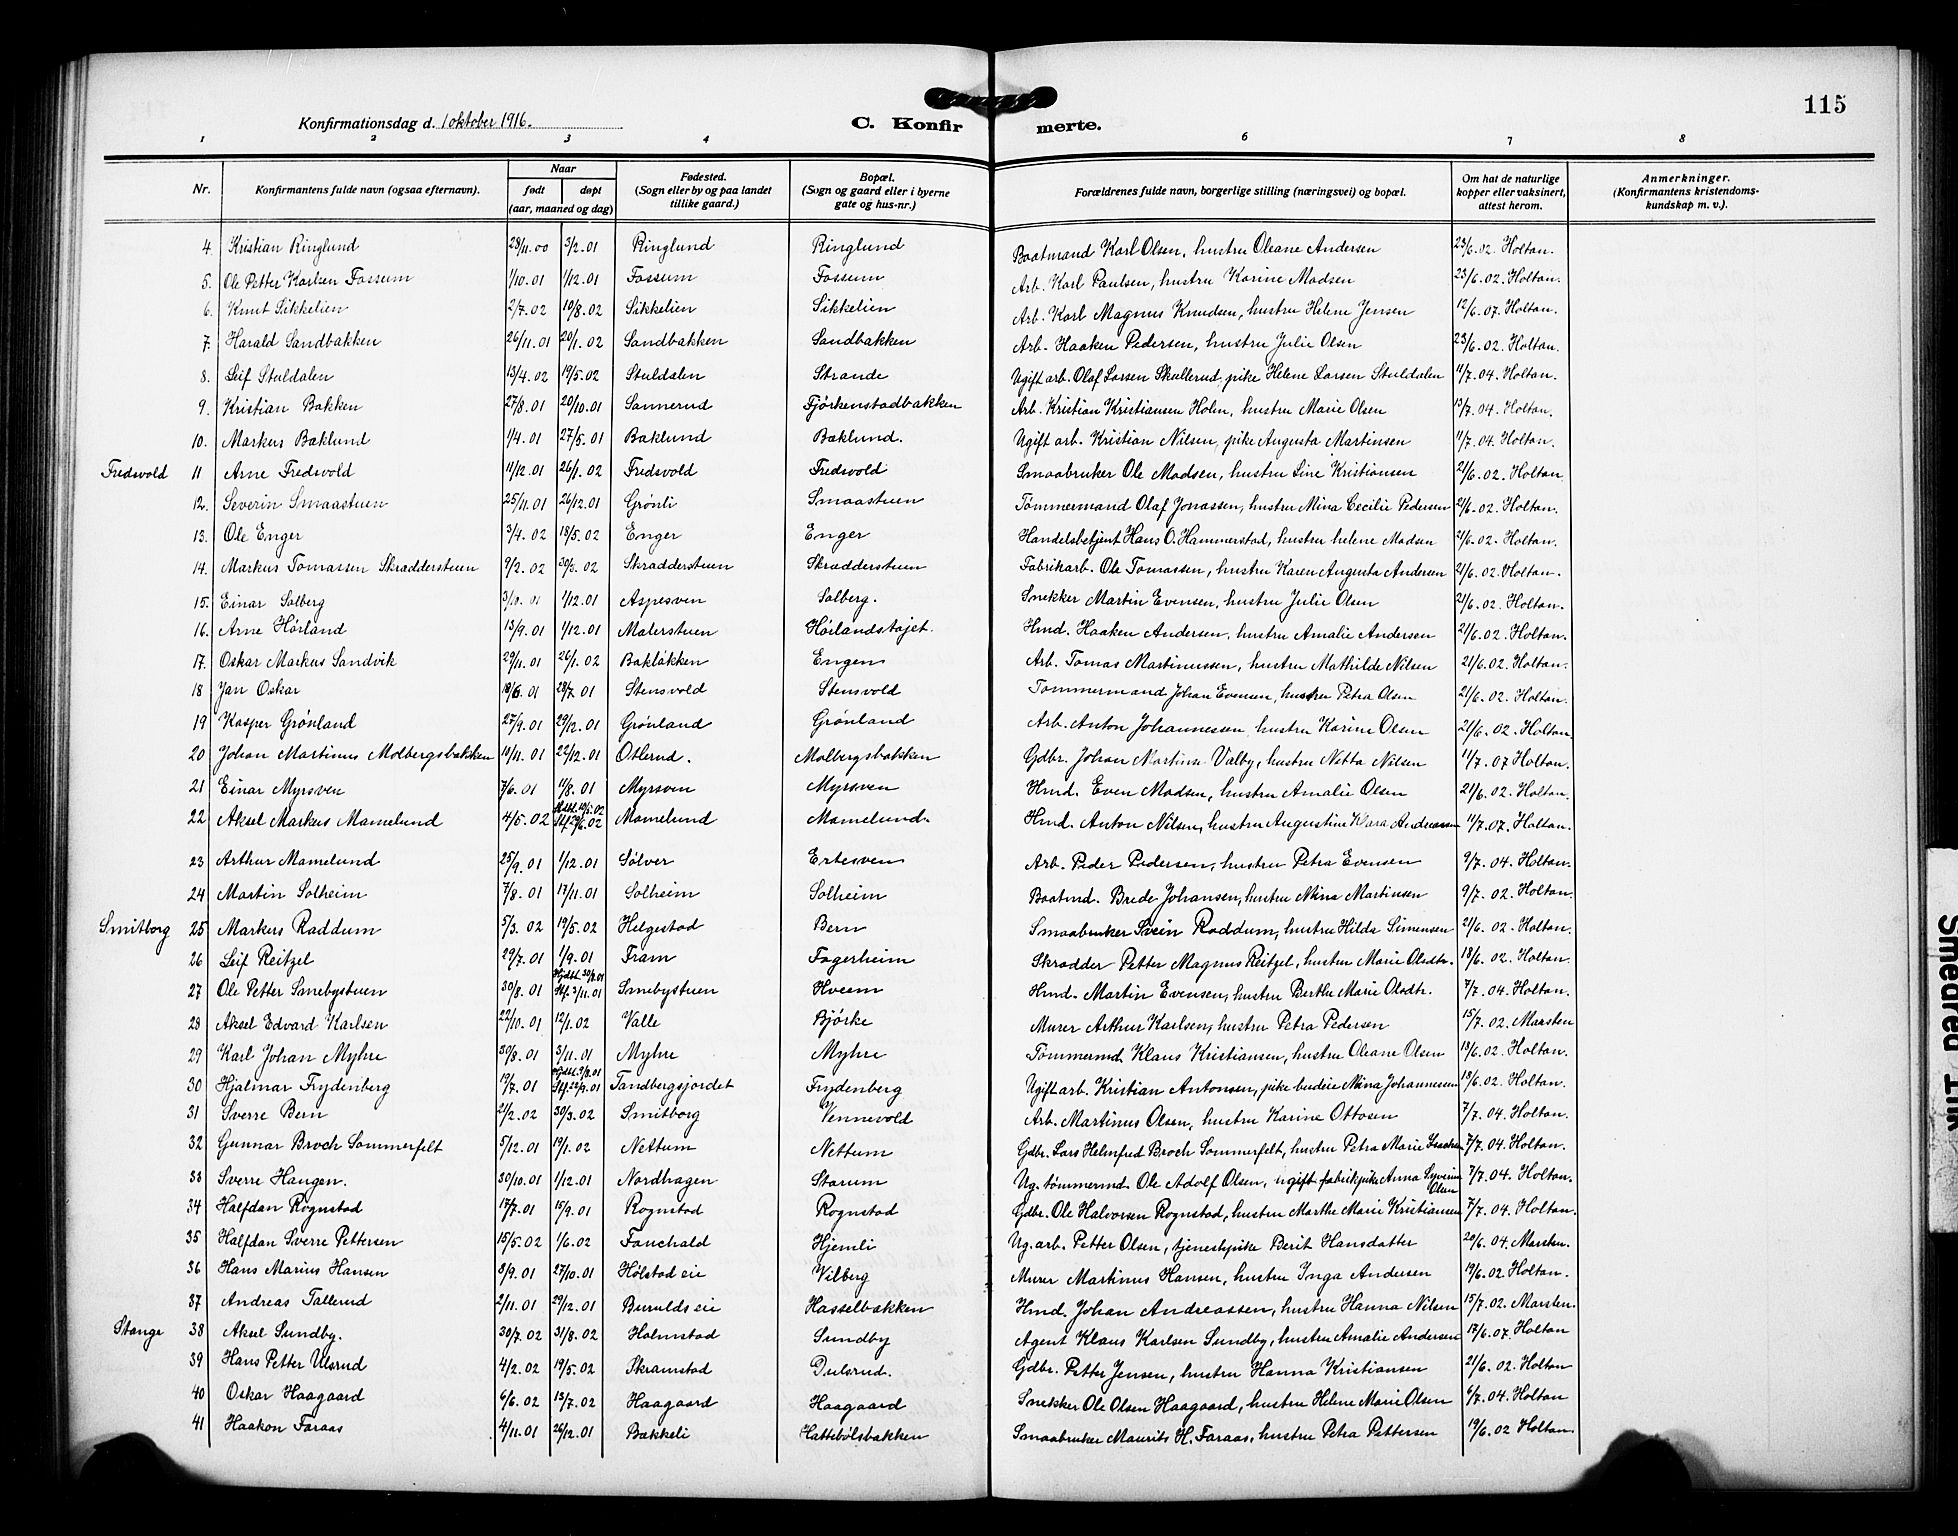 115
Konfirmationsdag d. 1 oktober 1916.
C. Konfirmerte.
1 2 3 4 6 7 8
Nr. Konfirmantens fulde navn (ogsaa efternavn). Naar født døpt (aar, maaned og dag) Fødested. (Sogn eller by og paa landet tillike gaard.) Bopæl. (Sogn og gaard eller i byerne gate og hus-nr.) Forældrenes fulde navn, borgerlige stilling (næringsvei) og bopæl. Om hat de naturlige kopper eller vaksinert, attest herom. Anmerkninger. (Konfirmantens kristendoms-kundskap m. v.).
4. Kristian Ringlund 28/11.00 3/2.01 Ringlund Ringlund Baatmand Karl Olsen, hustru Oleane Andersen 23/6.02. Holtan.
5. Ole Petter Karlsen Fossum 1/10.01 1/12.01 Fossum Fossum Arb. Karl Paulsen, hustru Karine Madsen 23/6.02. Holtan.
6. Knut Sikkelien 2/7.02 19/8.02 Sikkelien Sikkelien Arb. Karl Magnus Knudsen, hustru Helene Jensen 12/6.07. Holtan.
7. Harald Sandbakken 26/11.01 20/1.02 Sandbakken Sandbakken Arb. Haaken Pedersen, hustru Julie Olsen 23/6.02. Holtan.
8. Leif Stuldalen 13/4.02 19/5.02 Stuldalen Strande Ugift arb. Olaf Larsen Skallerud, pike Helene Larsen Stuldalen 11/7.04. Holtan.
9. Kristian Bakken 27/8.01 20/10.01 Sannerud Fjørkenstadbakken Arb. Kristian Kristiansen Holm, hustru Marie Olsen 13/7.04. Holtan.
10. Markus Baklund 1/4.01 27/5.01 Baklund Baklund. Ugift arb. Kristian Nilsen, pike Augusta Martinsen 11/7.04. Holtan.
Fredsvold 11 Arne Fredsvold 11/12.01 26/1.02 Fredsvold Fredsvold Smaabruker Ole Madsen, hustru Line Kristiansen 21/6.02. Holtan.
12. Severin Smaastuen 25/11.01 26/12.01 Grønli Smaastuen Tømmermand Olaf Jonassen, hustru Mina Cecilie Pedersen 21/6.02. Holtan.
13. Ole Enger 3/4.02 18/5.02 Enger Enger Handelsbetjent Hans O. Hammerstad, hustru helene Madsen 21/6.02. Holtan.
14. Markus Tomassen Skrædderstuen 9/2.02 30/3.02 Skrædderstuen Skrædderstuen Fabrikarb. Ole Tomassen, hustru Karen Augusta Andersen 21/6.02. Holtan.
15. Einar Solberg 3/10.01 1/12.01 Aspesven Solberg. Snekker Martin Evensen, hustru Julie Olsen 21/6.02. Holtan.
16. Arne Hørland 13/9.01 1/12.01 Malerstuen Hørlandstøjet. Hmd. Haaken Andersen, hustru Amalie Andersen 21/6.02. Holtan.
17. Oskar Markus Sandvik 29/11.01 26/1.02 Bakløkken Engen Arb. Tomas Martinussen, hustru Mathilde Nilsen 21/6.02. Holtan.
18 Jan Oskar 18/6.01 28/7.01 Stensvold Stensvold Tømmermand Johan Evensen, hustru Petra Olsen 21/6.02. Holtan.
19 Kasper Grønland 27/9.01 29/12.01 Grønland Grønland Arb. Anton Johannessen, hustru Karine Olsen 21/6.02. Holtan.
20 Johan Martinus Molbergsbakken 10/11.01 22/12.01 Otlerud. Molbergsbakken Gdbr. Johan Martinus Valby, hustru Netta Nilsen 11/7.07 Holtan.
21 Einar Myrsven 7/6.01 11/8.01 Myrsven Myrsven Hmd. Even Madsen, hustru Amalie Olsen 21/6.02. Holtan.
22 Aksel Markus Mamelund 4/5.02 Mamelund Mamelund. Hmd. Anton Nilsen, hustru Augustine Klara Andreassen 11/7.07. Holtan.
23 Arthur Mamelund 25/9.01 1/12.01 Sølver Ertesven Arb. Peder Pedersen, hustru Petra Evensen 9/7.04. Holtan.
24 Martin Solheim 7/8.01 17/11.01 Solheim Solheim Baatmd. Brede Johansen, hustru Mina Martinsen 9/7.02. Holtan.
Smitborg 25 Markus Raddum 5/3.02 19/5.02 Helgestad Bern Smaabruker Svein Raddum, hustru Hilda Simensen 21/6.02. Holtan.
26 Leif Reitzel 29/7.01 1/9.01 Fram Fagerheim Skrædder Petter Magnus Reitzel, hustru Marie Olsdtr. 18/6.02. Holtan.
27 Ole Petter Smebystuen 30/8.01 Smebystuen Hveem Hmd. Martin Evensen, hustru Berthe Marie Olsdtr. 7/7.04. Holtan.
28 Aksel Edvard Karlsen 22/10.01 12/1.02 Valle Bjørke Murer Arthur Karlsen, hustru Petra Pedersen 15/7.02. Marsten
29 Karl Johan Myhre 30/8.01 3/11.01 Myhre Myhre Tømmermd. Klaus Kristiansen, hustru Oleane Olsen 18/6.02. Holtan.
30 Hjalmar Frydenberg 19/7.01 Tandbergsjordet Frydenberg Ugift arb. Kristian Antonsen, pike budeie Mina Johannesen 18/6.02. Holtan.
31 Sverre Bern 21/2.02 30/3.02 Smitborg Vennevold Arb. Martinus Olsen, hustru Karine Ottosen 7/7.04. Holtan.
32 Gunnar Broch Sommerfelt 5/12.01 19/1.02 Nettum Nettum Gdbr. Lars Helmfred Broch Sommerfelt, hustru Petra Marie Isachsen 7/7.04. Holtan.
33 Sverre Haugen. 30/10.01 1/12.01 Nordhagen Starum Ug. tømmermd. Ole Adolf Olsen, ugift fabrikpike Anna Syverine Olsen 7/7.04. Holtan.
34 Halfdan Rognstad 17/7.01 15/9.01 Rognstad Rognstad Gdbr. Ole Halvorsen Rognstad, hustru Marthe Marie Kristiansen 7/7.04. Holtan.
35 Halfdan Sverre Pettersen 15/5.02 1/6.02 Fauchald Hjemli Ug. arb. Petter Olsen, tjenestpike Berit Hansdatter 20/6.04. Marsten.
36 Hans Marius Hansen 8/9.01 27/10.01 Hølstad eie Vilberg Murer Martinus Hansen, hustru Inga Andersen 19/6.02. Holtan.
37 Andreas Tallerud 2/11.01 29/12.01 Burulds eie Hasselbakken Hmd. Johan Andreassen, hustru Hanna Nilsen 15/7.02. Marsten.
Stange 38 Aksel Sundby. 30/7.02 31/8.02 Holmstad Sundby Agent Klaus Karlsen Sundby, hustru Amalie Andersen 17/6.07. Holtan
39 Hans Petter Ulsrud 4/2.02 19/5.02 Skramstad Dulsrud. Gdbr. Petter Jensen, hustru Hanna Kristiansen 21/6.02. Holtan
40 Oskar Haagaard 6/6.02 13/7.02 Haagaard Haagaard Snekker Ole Olsen Haagaard, hustru Helene Marie Olsen 6/7.04. Holtan
41 Haakon Faraas 4/11.01 26/12.01 Bækkeli Hattebølsbakken Smaabruker Maurits H. Faraas, hustru Petra Pettersen 19/6.02 Holtan.